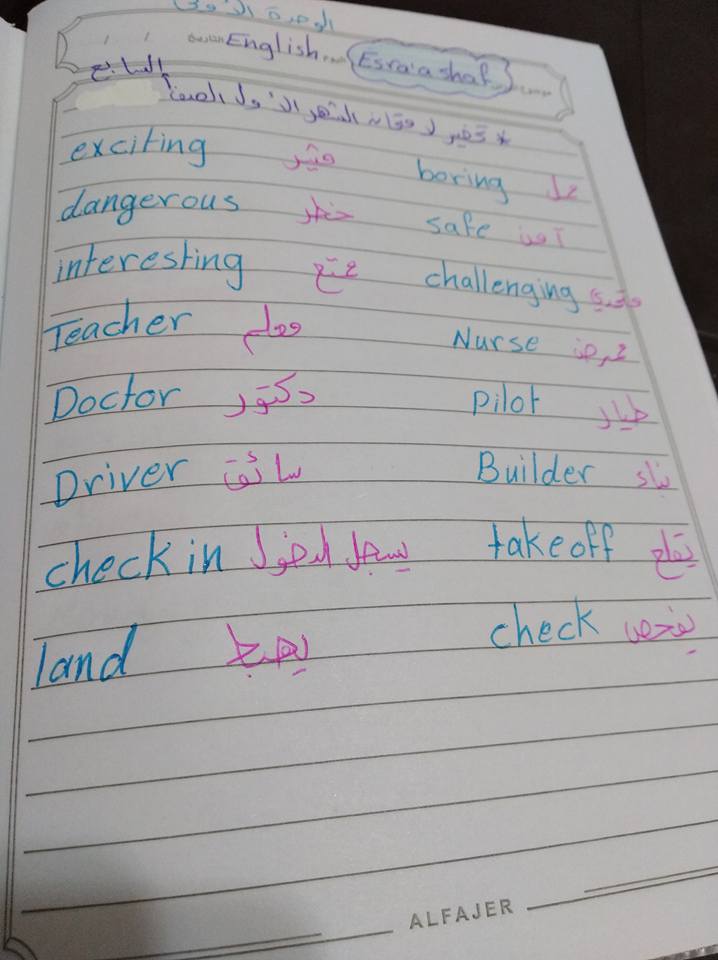 الوحدة الأولى
English Esra'a shaf
* تحضير لامتحان الشهر الأول الصف السابع
exciting مثير boring ممل
dangerous خطر safe آمن
interesting ممتع challenging متحدي
Teacher معلم Nurse ممرض
Doctor دكتور Pilot طيار
Driver سائق Builder بناء
check in يسجل الدخول take off يقلع
land يهبط check يفحص
ALFAJER